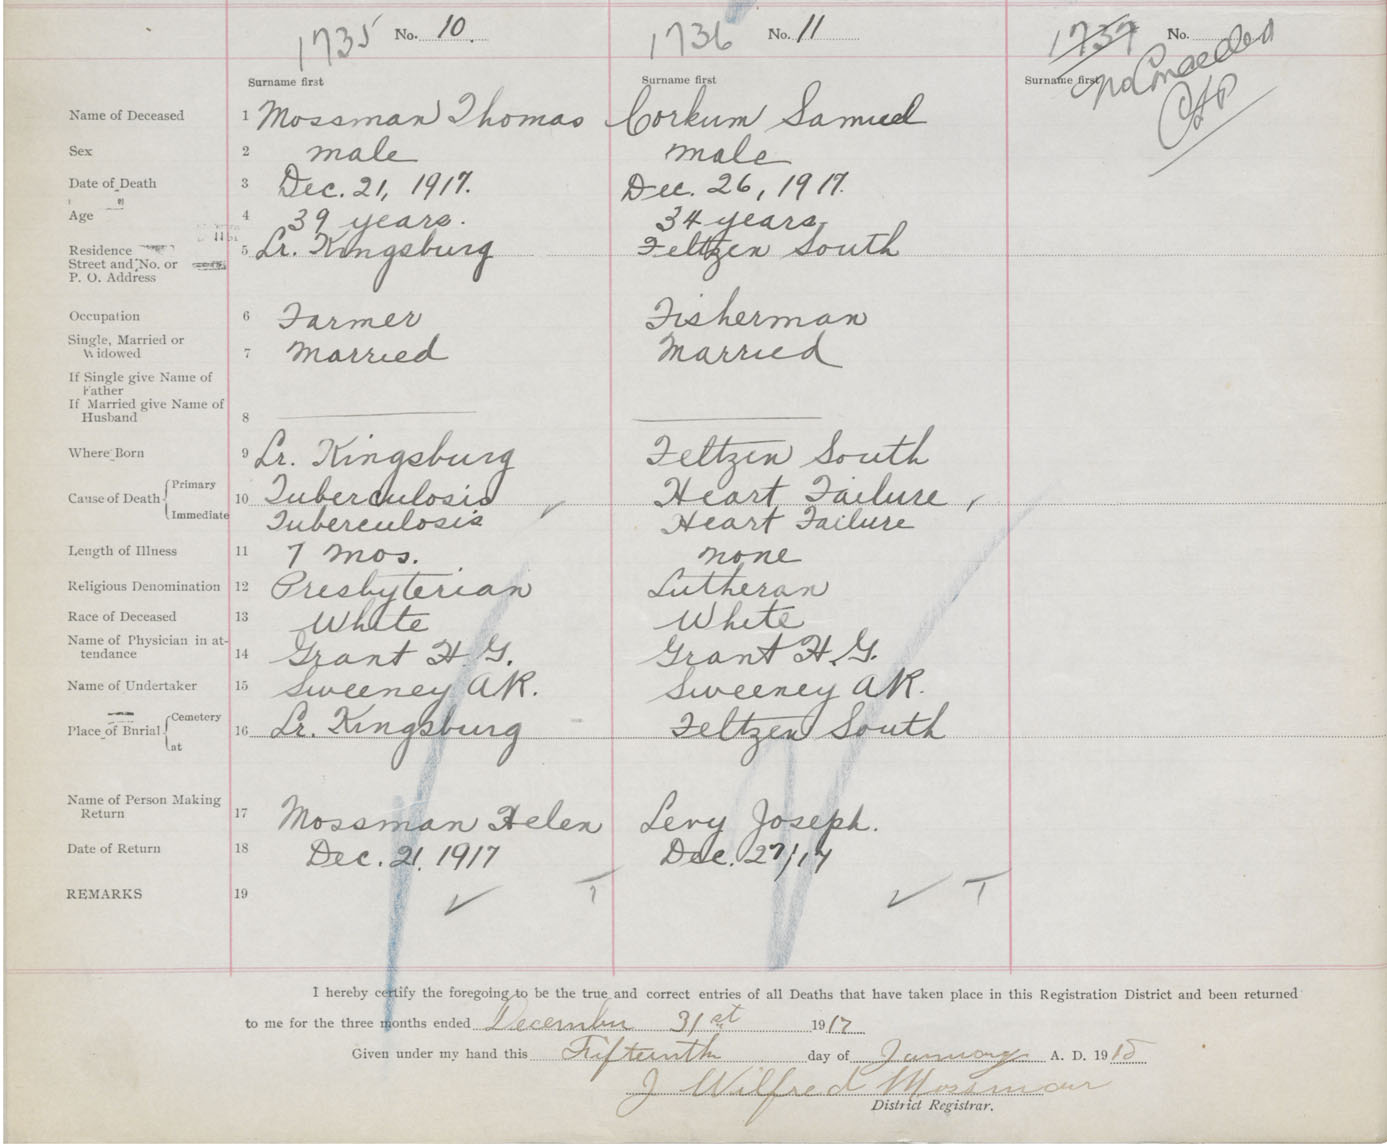 1735 No. 10. 1736 No. 11 1737 No.
Surname first Surname first Surname first
Name of Deceased 1 Mossman Thomas Corkum Samuel
Sex 2 male male
Date of Death 3 Dec. 21, 1917. Dec. 26, 1917.
Age 4 39 years. 34 years,
Residence 5 Lr. Kingsburg Feltzen South
Street and No. or
P. O. Address
Occupation 6 Farmer Fisherman
Single, Married or
Widowed 7 Married Married
If Single give Name of
Father
If Married give Name of
Husband 8
Where Born 9 Lr. Kingsburg Feltzen South
Cause of Death Primary 10 Tuberculosis Heart Failure
Immediate Tuberculosis Heart Failure
Length of Illness 11 7 mos. none
Religious Denomination 12 Presbyterian Lutheran
Race of Deceased 13 White White
Name of Physician in at-
tendance 14 Grant H. G. Grant H. G.
Name of Undertaker 15 Sweeney A R. Sweeney A R.
Place of Burial Cemetery 16 Lr. Kingsburg Feltzen South
at
Name of Person Making
Return 17 Mossman Helen Levy Joseph.
Date of Return 18 Dec. 21, 1917 Dec. 27/17
REMARKS 19
I hereby certify the foregoing to be the true and correct entries of all Deaths that have taken place in this Registration District and been returned
to me for the three months ended December 31st 1917
Given under my hand this Fifteenth day of January A. D. 1918
J Wilfred Mossman
District Registrar.